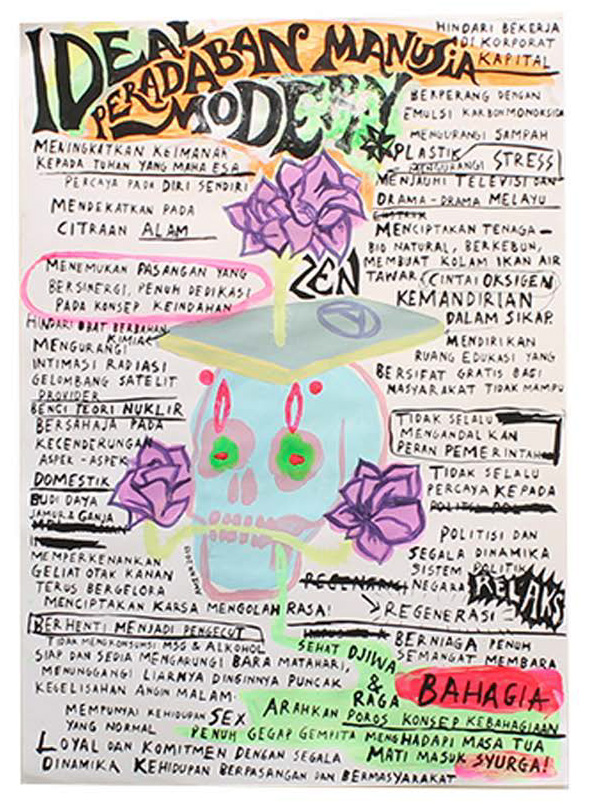 IDEAL
PERADABAN MANUSIA
MODERN
HINDARI BEKERJA
DI KORPORAT
KAPITAL
BERPERANG DENGAN
EMULSI KARBONMONOKSIDA
MENGURANGI SAMPAH
PLASTIK
MENGURANGI STRESS
MENJAUHI TELEVISI DAN
DRAMA-DRAMA MELAYU
MENCIPTAKAN TENAGA-
BIO NATURAL, BERKEBUN,
MEMBUAT KOLAM IKAN AIR
TAWAR. CINTAI OKSIGEN
KEMANDIRIAN
DALAM SIKAP.
MENDIRIKAN
RUANG EDUKASI YANG
BERSIFAT GRATIS BAGI
MASYARAKAT TIDAK MAMPU
TIDAK SELALU
MENGANDALKAN
PERAN PEMERINTAH
TIDAK SELALU
PERCAYA KEPADA
POLITISI DAN
SEGALA DINAMIKA
SISTEM POLITIK
NEGARA
RELAKS
REGENERASI
BERNIAGA PENUH
SEMANGAT MEMBARA
MENINGKATKAN KEIMANAN
KEPADA TUHAN YANG MAHA ESA
PERCAYA PADA DIRI SENDIRI
MENDEKATKAN PADA
CITRAAN ALAM
ZEN
MENEMUKAN PASANGAN YANG
BERSINERGI, PENUH DEDIKASI
PADA KONSEP KEINDAHAN
HINDARI OBAT BERBAHAN
KIMIA
MENGURANGI
INTIMASI RADIASI
GELOMBANG SATELIT
PROVIDER
BENCI TEORI NUKLIR
BERSAHAJA PADA
KECENDERUNGAN
ASPEK-ASPEK
DOMESTIK
BUDI DAYA
JAMUR & GANJA
MEMPERKENANKAN
GELIAT OTAK KANAN
TERUS BERGELORA
MENCIPTAKAN KARSA MENGOLAH RASA!
BERHENTI MENJADI PENGECUT
TIDAK MENGKONSUMSI MSG & ALKOHOL
SIAP DAN SEDIA MENGARUNGI BARA MATAHARI,
MENUNGGANGI LIARNYA DINGINNYA PUNCAK
KEGELISAHAN ANGIN MALAM.
SEHAT DJIWA
&
RAGA
BAHAGIA
MEMPUNYAI KEHIDUPAN SEX
YANG NORMAL
ARAHKAN POROS KONSEP KEBAHAGIAAN
PENUH GEGAP GEMPITA MENGHADAPI MASA TUA
MATI MASUK SYURGA!
LOYAL DAN KOMITMEN DENGAN SEGALA
DINAMIKA KEHIDUPAN BERPASANGAN DAN BERMASYARAKAT